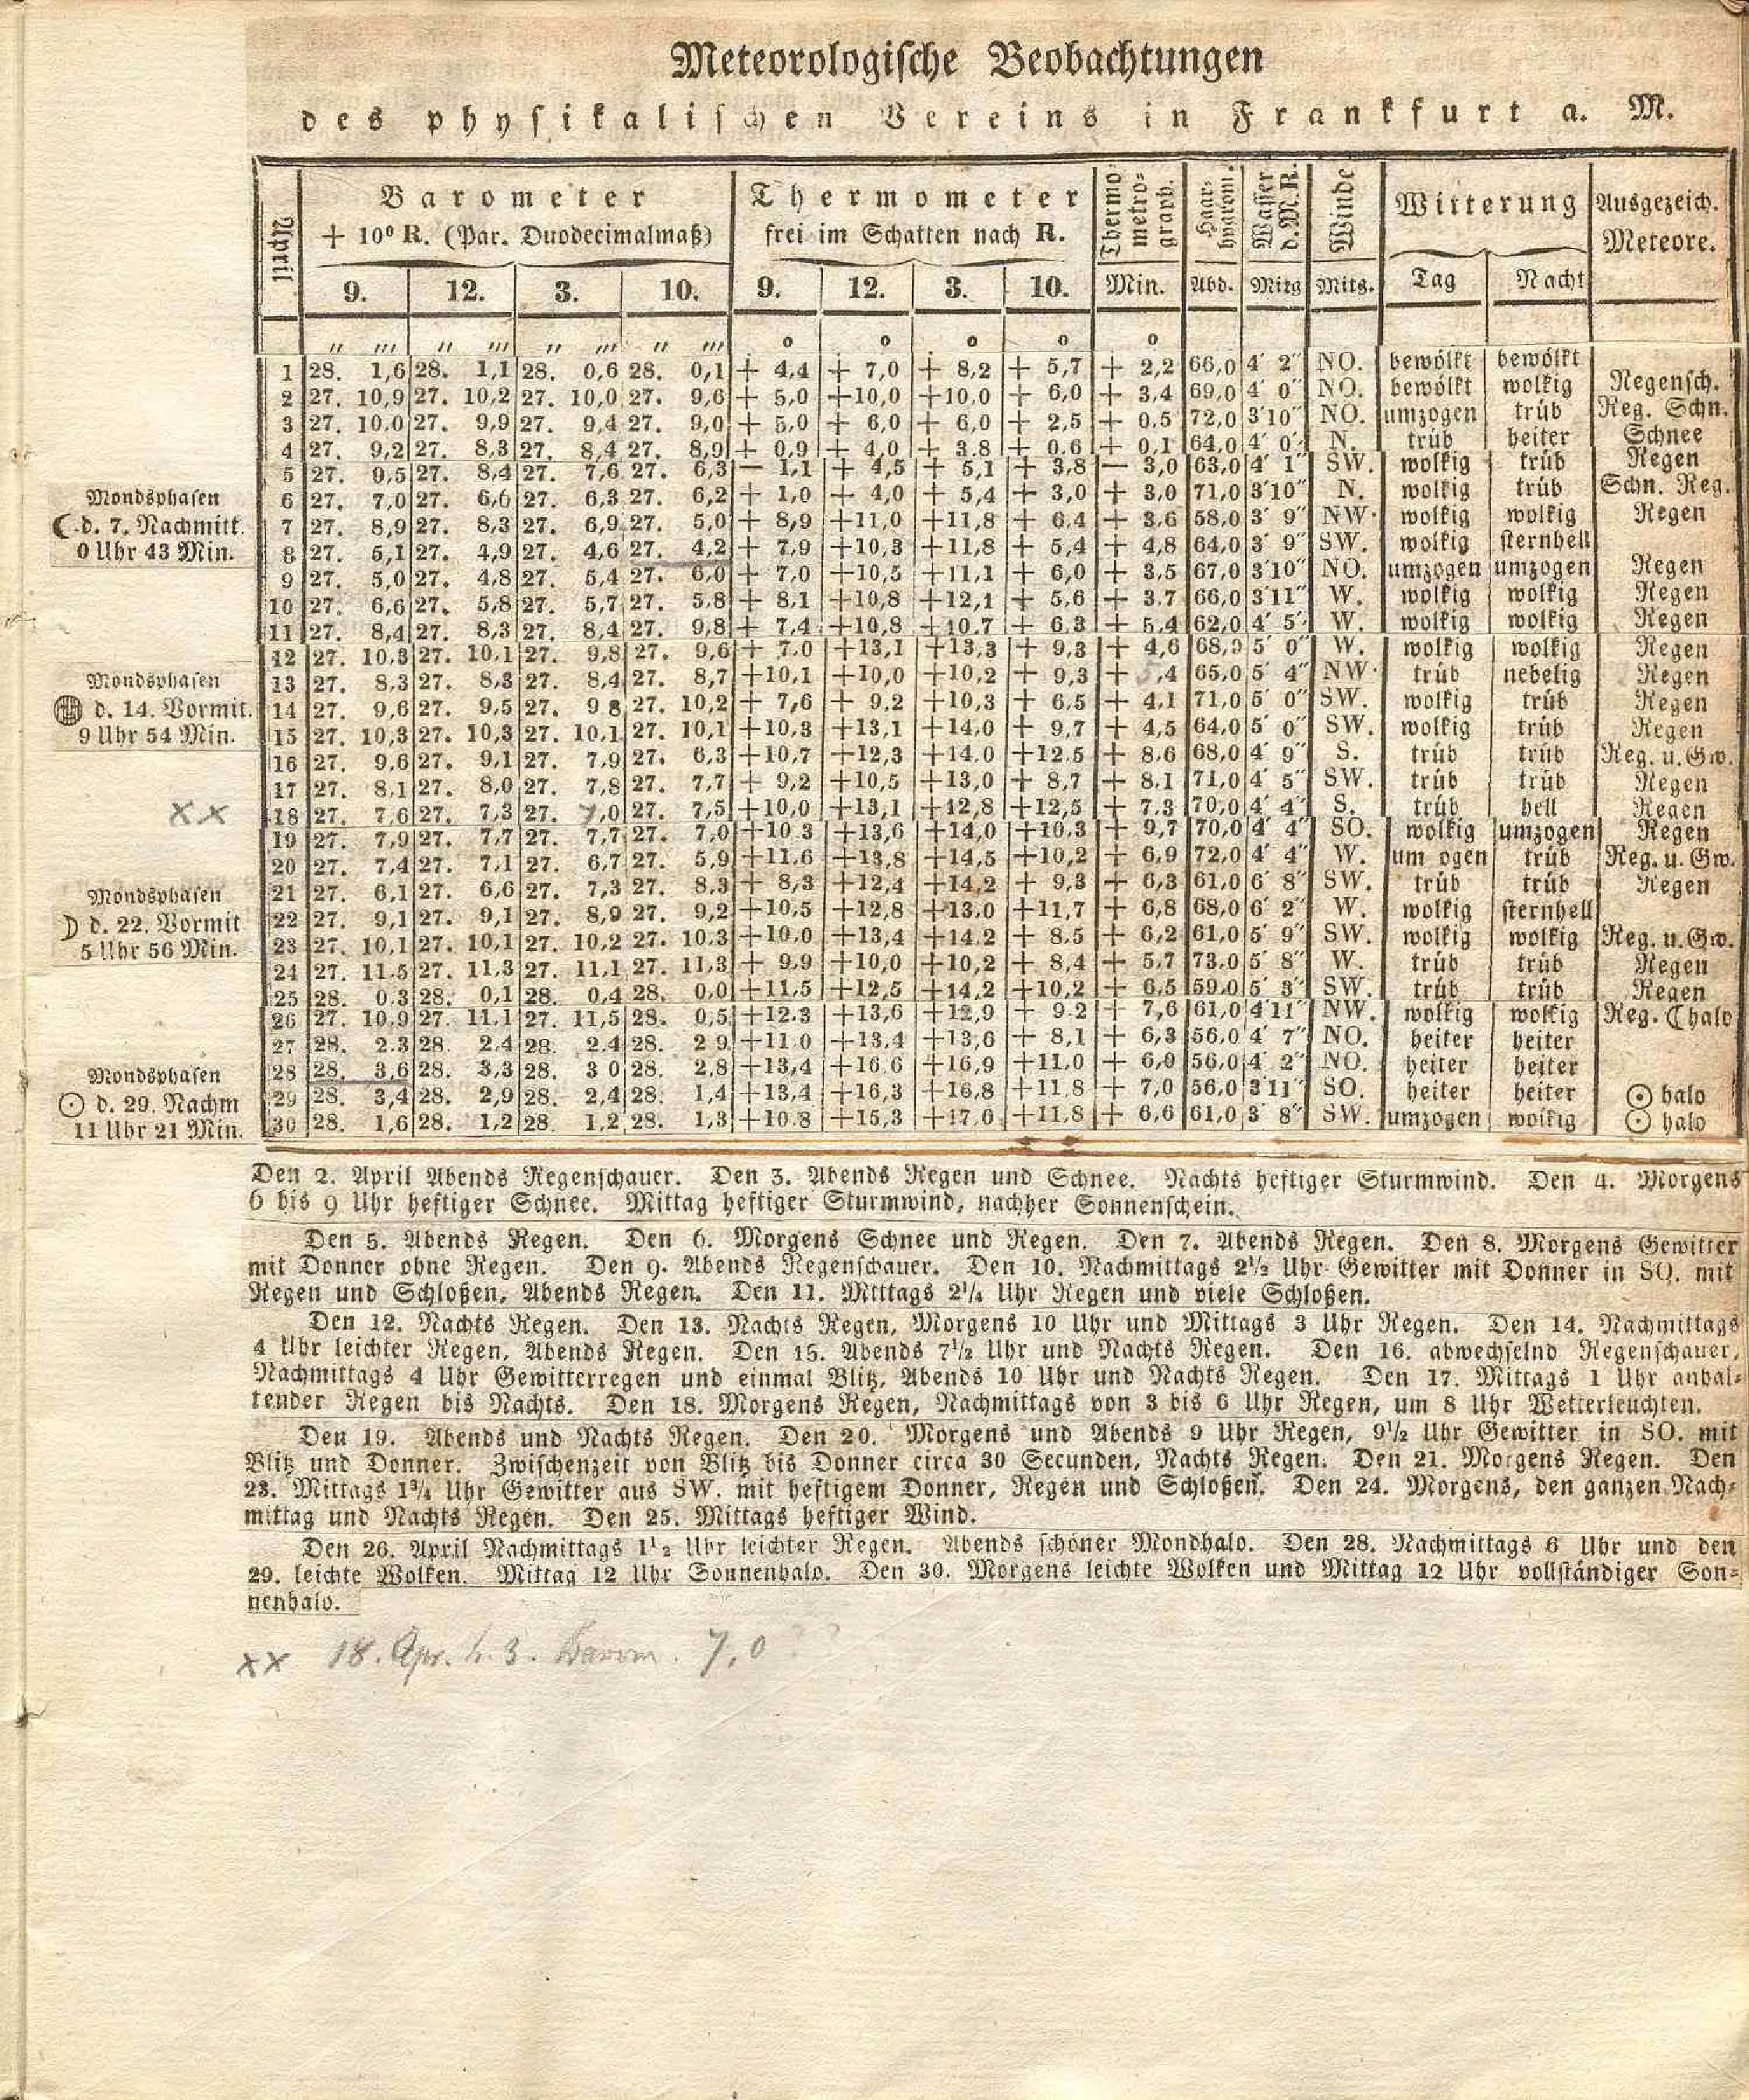 Meteorologische Beobachtungen
des physikalischen Vereins in Frankfurt a. M.
April | Barometer + 10° R. (Par. Duodecimalmaß) | Thermometer frei im Schatten nach R. | Thermometrograph. | Haarhygrom. | Wasser d. M. R. | Winde | Witterung | Ausgezeich. Meteore.
9. | 12. | 3. | 10. | 9. | 12. | 3. | 10. | Min. | Abd. | Mittg | Mitg. | Tag | Nacht
" ''' " ''' " ''' " ''' o o o o o
1 | 28. 1,6 | 28. 1,1 | 28. 0,6 | 28. 0,1 | + 4,4 | + 7,0 | + 8,2 | + 5,7 | + 2,2 | 66,0 | 4' 2" | NO. | bewölkt | bewölkt
2 | 27. 10,9 | 27. 10,2 | 27. 10,0 | 27. 9,6 | + 5,0 | +10,0 | +10,0 | + 6,0 | + 3,4 | 69,0 | 4' 0" | NO. | bewölkt | wolkig | Regensch.
3 | 27. 10,0 | 27. 9,9 | 27. 9,4 | 27. 9,0 | + 5,0 | + 6,0 | + 6,0 | + 2,5 | + 0,5 | 72,0 | 3'10" | NO. | umzogen | trüb | Reg. Schn.
4 | 27. 9,2 | 27. 8,3 | 27. 8,4 | 27. 8,9 | + 0,9 | + 4,0 | + 3,8 | + 0,6 | + 0,1 | 64,0 | 4' 0" | N. | trüb | heiter | Schnee
5 | 27. 9,5 | 27. 8,4 | 27. 7,6 | 27. 6,3 | − 1,1 | + 4,5 | + 5,1 | + 3,8 | − 3,0 | 63,0 | 4' 1" | SW. | wolkig | trüb | Regen
6 | 27. 7,0 | 27. 6,6 | 27. 6,3 | 27. 6,2 | + 1,0 | + 4,0 | + 5,4 | + 3,0 | + 3,0 | 71,0 | 3'10" | N. | wolkig | trüb | Schn. Reg.
7 | 27. 8,9 | 27. 8,3 | 27. 6,9 | 27. 5,0 | + 8,9 | +11,0 | +11,8 | + 6,4 | + 3,6 | 58,0 | 3' 9" | NW. | wolkig | wolkig | Regen
8 | 27. 5,1 | 27. 4,9 | 27. 4,6 | 27. 4,2 | + 7,9 | +10,3 | +11,8 | + 5,4 | + 4,8 | 64,0 | 3' 9" | SW. | wolkig | sternhell
9 | 27. 5,0 | 27. 4,8 | 27. 5,4 | 27. 6,0 | + 7,0 | +10,5 | +11,1 | + 6,0 | + 3,5 | 67,0 | 3'10" | NO. | umzogen | umzogen | Regen
10 | 27. 6,6 | 27. 5,8 | 27. 5,7 | 27. 5,8 | + 8,1 | +10,8 | +12,1 | + 5,6 | + 3,7 | 66,0 | 3'11" | W. | wolkig | wolkig | Regen
11 | 27. 8,4 | 27. 8,3 | 27. 8,4 | 27. 9,8 | + 7,4 | +10,8 | +10,7 | + 6,3 | + 5,4 | 62,0 | 4' 5" | W. | wolkig | wolkig | Regen
12 | 27. 10,3 | 27. 10,1 | 27. 9,8 | 27. 9,6 | + 7,0 | +13,1 | +13,3 | + 9,3 | + 4,6 | 68,0 | 5' 0" | W. | wolkig | wolkig | Regen
13 | 27. 8,3 | 27. 8,3 | 27. 8,4 | 27. 8,7 | +10,1 | +10,0 | +10,2 | + 9,3 | + ,4 | 65,0 | 5' 4" | NW. | trüb | nebelig | Regen
14 | 27. 9,6 | 27. 9,5 | 27. 9 8 | 27. 10,2 | + 7,6 | + 9,2 | +10,3 | + 6,5 | + 4,1 | 71,0 | 5' 0" | SW. | wolkig | trüb | Regen
15 | 27. 10,3 | 27. 10,3 | 27. 10,1 | 27. 10,1 | +10,3 | +13,1 | +14,0 | + 9,7 | + 4,5 | 64,0 | 5' 0" | SW. | wolkig | trüb | Regen
16 | 27. 9,6 | 27. 9,1 | 27. 7,9 | 27. 6,3 | +10,7 | +12,3 | +14,0 | +12,5 | + 8,6 | 68,0 | 4' 9" | S. | trüb | trüb | Reg. u. Gw.
17 | 27. 8,1 | 27. 8,0 | 27. 7,8 | 27. 7,7 | + 9,2 | +10,5 | +13,0 | + 8,7 | + 8,1 | 71,0 | 4' 5" | SW. | trüb | trüb | Regen
18 | 27. 7,6 | 27. 7,3 | 27. 7,0 | 27. 7,5 | +10,0 | +13,1 | +12,8 | +12,5 | + 7,3 | 70,0 | 4' 4" | S. | trüb | hell | Regen
19 | 27. 7,9 | 27. 7,7 | 27. 7,7 | 27. 7,0 | +10,3 | +13,6 | +14,0 | +10,3 | + 9,7 | 70,0 | 4' 4" | SO. | wolkig | umzogen | Regen
20 | 27. 7,4 | 27. 7,1 | 27. 6,7 | 27. 5,9 | +11,6 | +13,8 | +14,5 | +10,2 | + 6,9 | 72,0 | 4' 4" | W. | um ogen | trüb | Reg. u. Gw.
21 | 27. 6,1 | 27. 6,6 | 27. 7,3 | 27. 8,3 | + 8,3 | +12,4 | +14,2 | + 9,3 | + 6,3 | 61,0 | 6' 8" | SW. | trüb | trüb | Regen
22 | 27. 9,1 | 27. 9,1 | 27. 8,9 | 27. 9,2 | +10,5 | +12,8 | +13,0 | +11,7 | + 6,8 | 68,0 | 6' 2" | W. | wolkig | sternhell
23 | 27. 10,1 | 27. 10,1 | 27. 10,2 | 27. 10,3 | +10,0 | +13,4 | +14,2 | + 8,5 | + 6,2 | 61,0 | 5' 9" | SW. | wolkig | wolkig | Reg. u. Gw.
24 | 27. 11,5 | 27. 11,3 | 27. 11,1 | 27. 11,3 | + 9,9 | +10,0 | +10,2 | + 8,4 | + 5,7 | 73,0 | 5' 8" | W. | trüb | trüb | Regen
25 | 28. 0,3 | 28. 0,1 | 28. 0,4 | 28. 0,0 | +11,5 | +12,5 | +14,2 | +10,2 | + 6,5 | 59,0 | 5' 3" | SW. | trüb | trüb | Regen
26 | 27. 10,9 | 27. 11,1 | 27. 11,5 | 28. 0,5 | +12,3 | +13,6 | +12,9 | + 9,2 | + 7,6 | 61,0 | 4'11" | NW. | wolkig | wolkig | Reg. ☾ halo
27 | 28. 2,3 | 28. 2,4 | 28. 2,4 | 28. 2 9 | +11,0 | +13,4 | +13,6 | + 8,1 | + 6,3 | 56,0 | 4' 7" | NO. | heiter | heiter
28 | 28. 3,6 | 28. 3,3 | 28. 3 0 | 28. 2,8 | +13,4 | +16,6 | +16,9 | +11,0 | + 6,0 | 56,0 | 4' 2" | NO. | heiter | heiter
29 | 28. 3,4 | 28. 2,9 | 28. 2,4 | 28. 1,4 | +13,4 | +16,3 | +16,8 | +11,8 | + 7,0 | 56,0 | 3'11" | SO. | heiter | heiter | ☉ halo
30 | 28. 1,6 | 28. 1,2 | 28. 1,2 | 28. 1,3 | +10,8 | +15,3 | +17,0 | +11,8 | + 6,6 | 61,0 | 3' 8" | SW. | umzogen | wolkig | ☉ halo
Mondsphasen
☾ d. 7. Nachmitt.
0 Uhr 43 Min.
Mondsphasen
d. 14. Vormit.
9 Uhr 54 Min.
xx
Mondsphasen
☽ d. 22. Vormit
5 Uhr 56 Min.
Mondsphasen
☉ d. 29. Nachm
11 Uhr 21 Min.
Den 2. April Abends Regenschauer. Den 3. Abends Regen und Schnee. Nachts heftiger Sturmwind. Den 4. Morgens
6 bis 9 Uhr heftiger Schnee. Mittag heftiger Sturmwind, nachher Sonnenschein.
Den 5. Abends Regen. Den 6. Morgens Schnee und Regen. Den 7. Abends Regen. Den 8. Morgens Gewitter
mit Donner ohne Regen. Den 9. Abends Regenschauer. Den 10. Nachmittags 2½ Uhr Gewitter mit Donner in SO. mit
Regen und Schloßen, Abends Regen. Den 11. Mittags 2¼ Uhr Regen und viele Schloßen.
Den 12. Nachts Regen. Den 13. Nachts Regen, Morgens 10 Uhr und Mittags 3 Uhr Regen. Den 14. Nachmittags
4 Uhr leichter Regen, Abends Regen. Den 15. Abends 7½ Uhr und Nachts Regen. Den 16. abwechselnd Regenschauer,
Nachmittags 4 Uhr Gewitterregen und einmal Blitz, Abends 10 Uhr und Nachts Regen. Den 17. Mittags 1 Uhr anhal-
tender Regen bis Nachts. Den 18. Morgens Regen, Nachmittags von 3 bis 6 Uhr Regen, um 8 Uhr Wetterleuchten.
Den 19. Abends und Nachts Regen. Den 20. Morgens und Abends 9 Uhr Regen, 9½ Uhr Gewitter in SO. mit
Blitz und Donner. Zwischenzeit von Blitz bis Donner circa 30 Secunden, Nachts Regen. Den 21. Morgens Regen. Den
23. Mittags 1¾ Uhr Gewitter aus SW. mit heftigem Donner, Regen und Schloßen. Den 24. Morgens, den ganzen Nach-
mittag und Nachts Regen. Den 25. Mittags heftiger Wind.
Den 26. April Nachmittags 1½ Uhr leichter Regen. Abends schöner Mondhalo. Den 28. Nachmittags 6 Uhr und den
29. leichte Wolken. Mittag 12 Uhr Sonnenhalo. Den 30. Morgens leichte Wolken und Mittag 12 Uhr vollständiger Son-
nenhalo.
xx 18. Apr. h. 3. Barom. 7,0 ??